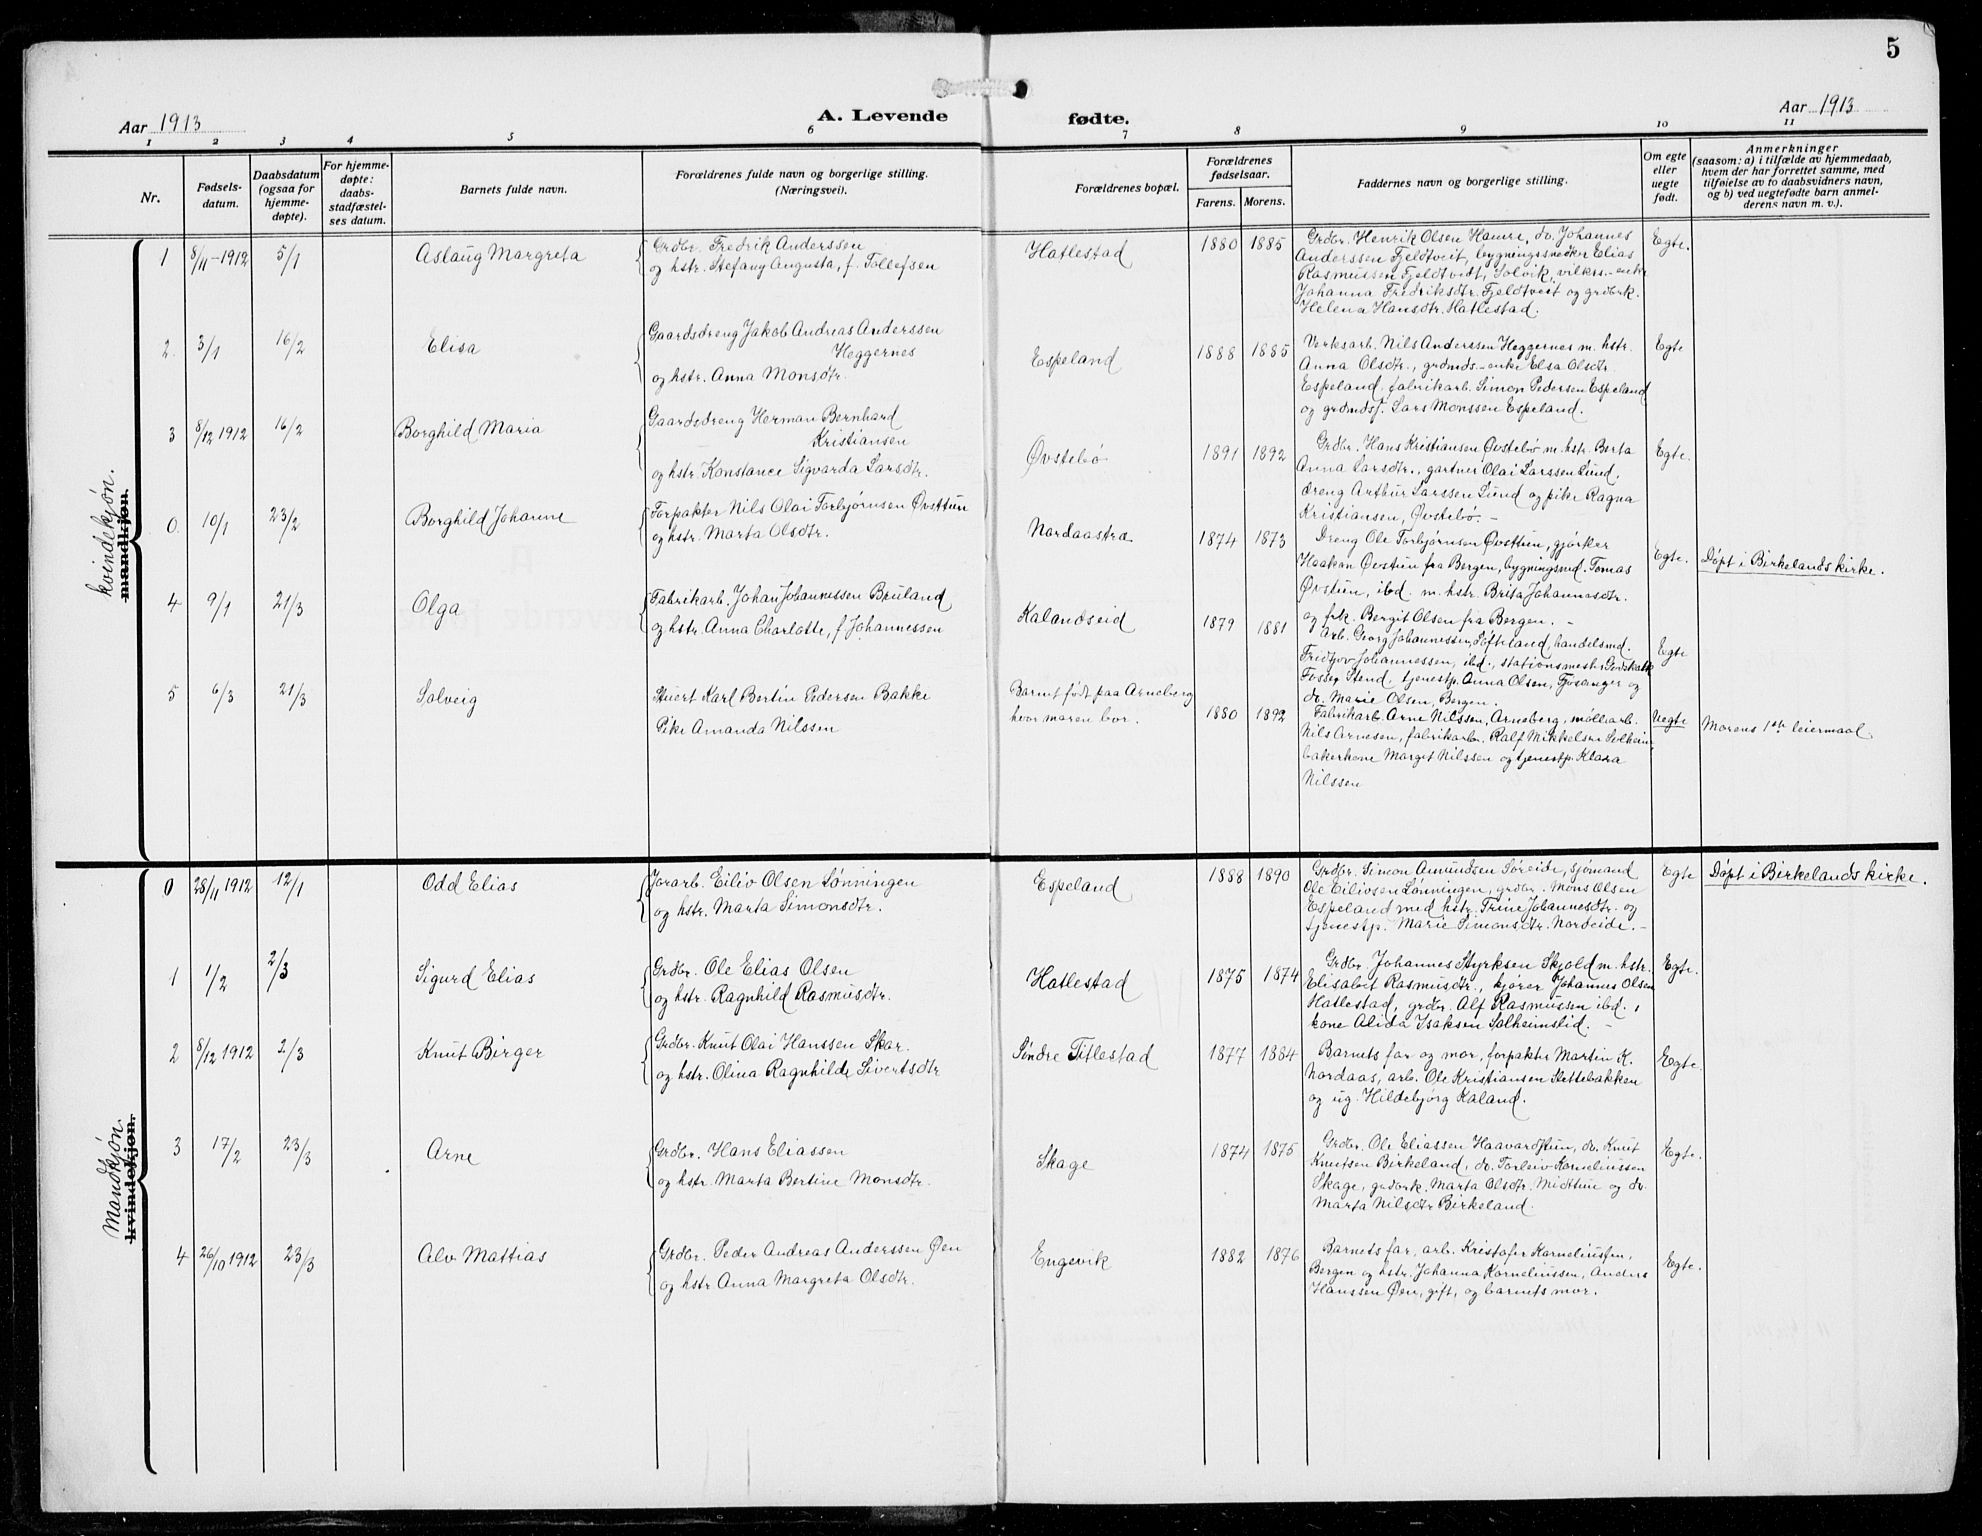 5
Aar 1913
A. Levende fødte.
Aar 1913
1 2 3 4 5 6 7 8 9 10 11
Nr.
Fødsels-
datum.
Daabsdatum
(ogsaa for
hjemme-
døpte).
For hjemme-
døpte:
daabs-
stadfæstel-
ses datum.
Barnets fulde navn.
Forældrenes fulde navn og borgerlige stilling.
(Næringsvei).
Forældrenes bopæl.
Forældrenes
fødselsaar.
Farens. Morens.
Faddernes navn og borgerlige stilling.
Om egte
eller
uegte
født.
Anmerkninger
(saasom: a) i tilfælde av hjemmedaab,
hvem der har forrettet samme, med
tilføielse av to daabsvidners navn,
og b) ved uegtefødte barn anmel-
derens navn m. v.).
kvindekjøn.
mandkjøn.
1 8/11-1912 5/1 Aslaug Margreta
Grdbr. Fredrik Anderssen
og hstr. Stefany Augusta, f. Tollefsen
Hatlestad 1880 1885
Grdbr. Henrik Olsen Hamre, do. Johannes
Anderssen Fjeldtveit, bygningssnedker Elias
Rasmussen Fjeldtvedt, Solvik, vilkrs.-enke
Johanna Fredriksdtr. Fjeldtveit og grdbrk.
Helena Hansdtr. Hatlestad.
Egte.
2. 3/1 16/2 Elisa
Gaardsdreng Jakob Andreas Anderssen
Heggernes
og hstr. Anna Monsdtr.
Espeland 1888 1885
Verksarb. Nils Anderssen Heggernes m. hstr.
Anna Olsdtr., grdmds.-enke Elsa Olsdtr.
Espeland, fabrikarb. Simon Pedersen Espeland
og grdmdsf. Lars Monssen Espeland.
Egte
3 8/12 1912 16/2 Borghild Maria
Gaardsdreng Herman Bernhard
Kristiansen
og hstr. Konstance Sigvarda Larsdtr.
Øvstebø 1891 1892
Grdbr. Hans Kristiansen Øvstebø m. hstr. Berta
Anna Larsdtr., gartner Olai Larssen Lund,
dreng Arthur Larssen Lund og pike Ragna
Kristiansen, Øvstebø.-
Egte.
0. 10/1 23/2 Borghild Johanne
Forpakter Nils Olai Torbjørnsen Øvsttun
og hstr. Marta Olsdtr.
Nordaastræ 1874 1873
Dreng Ole Torbjørnsen Øvsttun, gjørker
Haakon Øvstun fra Bergen, bygningsmd. Tomas
Øvstun, ibd. m. hstr. Brita Johannesdtr.
og frk. Bergit Olsen fra Bergen. -
Egte.
Døpt i Birkelands kirke.
4 9/1 21/3 Olga
Fabrikarb. Johan Johannessen Bruland
og hstr. Anna Charlotte, f. Johannessen
Kalandseid 1879 1881
Arb. Georg Johannessen, Søfteland, handelsmd.
Fridtjov Johannessen, ibd., stationsmestr. Godskalk
Fosse, Stend, tjenestp. Anna Olsen, Fjøsanger og
do. Marie Olsen, Bergen.
Egte
5 6/3 21/3 Solveig
Stuert Karl Bertin Pedersen Bakke
Pike Amanda Nilssen
Barnet født paa Arneberg
hvor moren bor.
1880 1892
Fabrikarb. Arne Nilssen, Arneberg, møllearb.
Nils Arnesen, fabrikarb. Ralf Mikkelsen Solheim,
bakerkone Marget Nilssen og tjenestp. Klara
Nilssen
Uegte
Morens 1ste leiermaal.
Mandkjøn.
kvindekjøn.
0 28/11 1912 12/1 Odd Elias
Jorarb. Eiliv Olsen Lønningen
og hstr. Marta Simonsdtr.
Espeland 1888 1890
Grdbr. Simon Amundsen Søreide, sjømand
Ole Eilivsen Lønningen, grdbr. Mons Olsen
Espeland med hstr. Trine Johannesdtr. og
tjenestp. Marie Simonsdtr. Nordeide. -
Egte
Døpt i Birkelands kirke.
1 1/2 2/3 Sigurd Elias
Grdbr. Ole Elias Olsen
og hstr. Ragnhild Rasmusdtr.
Hatlestad 1875 1874
Grdbr. Johannes Styrksen Skjold m. hstr.
Elisabet Rasmusdtr., kjører Johannes Olsen
Hatlestad, grdbr. Alf Rasmussen ibd.,
kone Alida Isaksen Solheimslid. -
Egte.
2 8/12 1912 2/3 Knut Birger
Grdbr. Knut Olai Hanssen Skar.
og hstr. Olina Ragnhilde Sivertsdtr
Søndre Titlestad 1877 1884
Barnets far og mor, forpakter Martin K.
Nordaas, arb. Ole Kristiansen Stettebakken
og ug. Hildebjørg Kaland.
Egte.
3 17/2 23/3 Arne
Grdbr. Hans Eliassen
og hstr. Marta Bertine Monsdtr.
Skage 1874 1875
Grdbr. Ole Eliassen Haavardstun, do. Knut
Knutsen Birkeland, do. Torleiv Korneliussen
Skage, grdbrk. Marta Olsdtr. Midttun og do.
Marta Nilsdtr Birkeland.
Egte.
4 26/10 1912 23/3 Alv Mattias
Grdbr. Peder Andreas Anderssen Øen
og hstr. Anna Margreta Olsdtr.
Engevik 1882 1876
Barnets far, arb. Kristofer Korneliussen,
Bergen og hstr. Johanna Korneliussen, Anders
Hanssen Øen, gift, og barnets mor.
Egte.